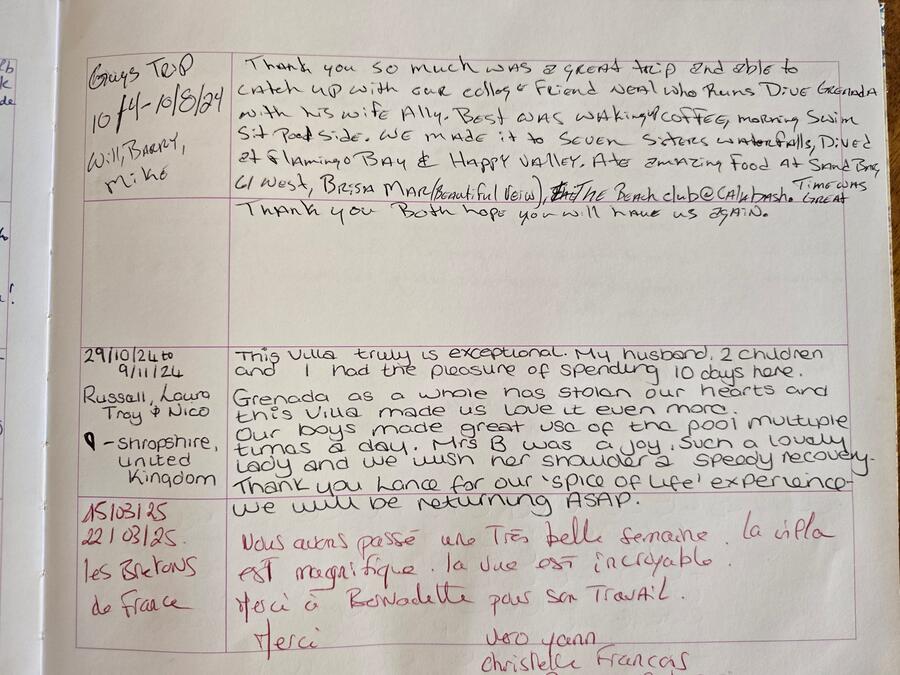 Guys Trip
10/4-10/8/24
Will, Barry,
Mike
Thank you so much was a great trip and able to
catch up with our college Friend Neal who Runs Dive Grenada
with his wife Ally. Best was waking COFFEE, morning Swim
Sit Pool side. We made it to Seven Sisters waterfalls, Dived
at Flamingo Bay & Happy Valley. Ate amazing Food At Sand Bar,
61 West, Brisa Mar (Beautiful Veiw), The Beach club @ Calabash. Time was GREAT
Thank you Both hope you will have us again.
29/10/24 to
9/11/24
Russell, Laura
Troy & Nico
- Shropshire,
United
Kingdom
This Villa truly is exceptional. My husband, 2 children
and I had the pleasure of spending 10 days here.
Grenada as a whole has stolen our hearts and
this Villa made us love it even more.
Our boys made great use of the pool multiple
times a day. Mrs B was a joy. Such a lovely
lady and we wish her shoulder a speedy recovery.
Thank you Lance for our 'spice of life' experience-
we will be returning ASAP.
15/03/25
22/03/25.
les Bretons
de France
Nous avons passé une Très belle semaine. la villa
est magnifique. la vue est incroyable.
Merci à Bernadette pour son Travail.
Merci
Vero yann
christelle Francois